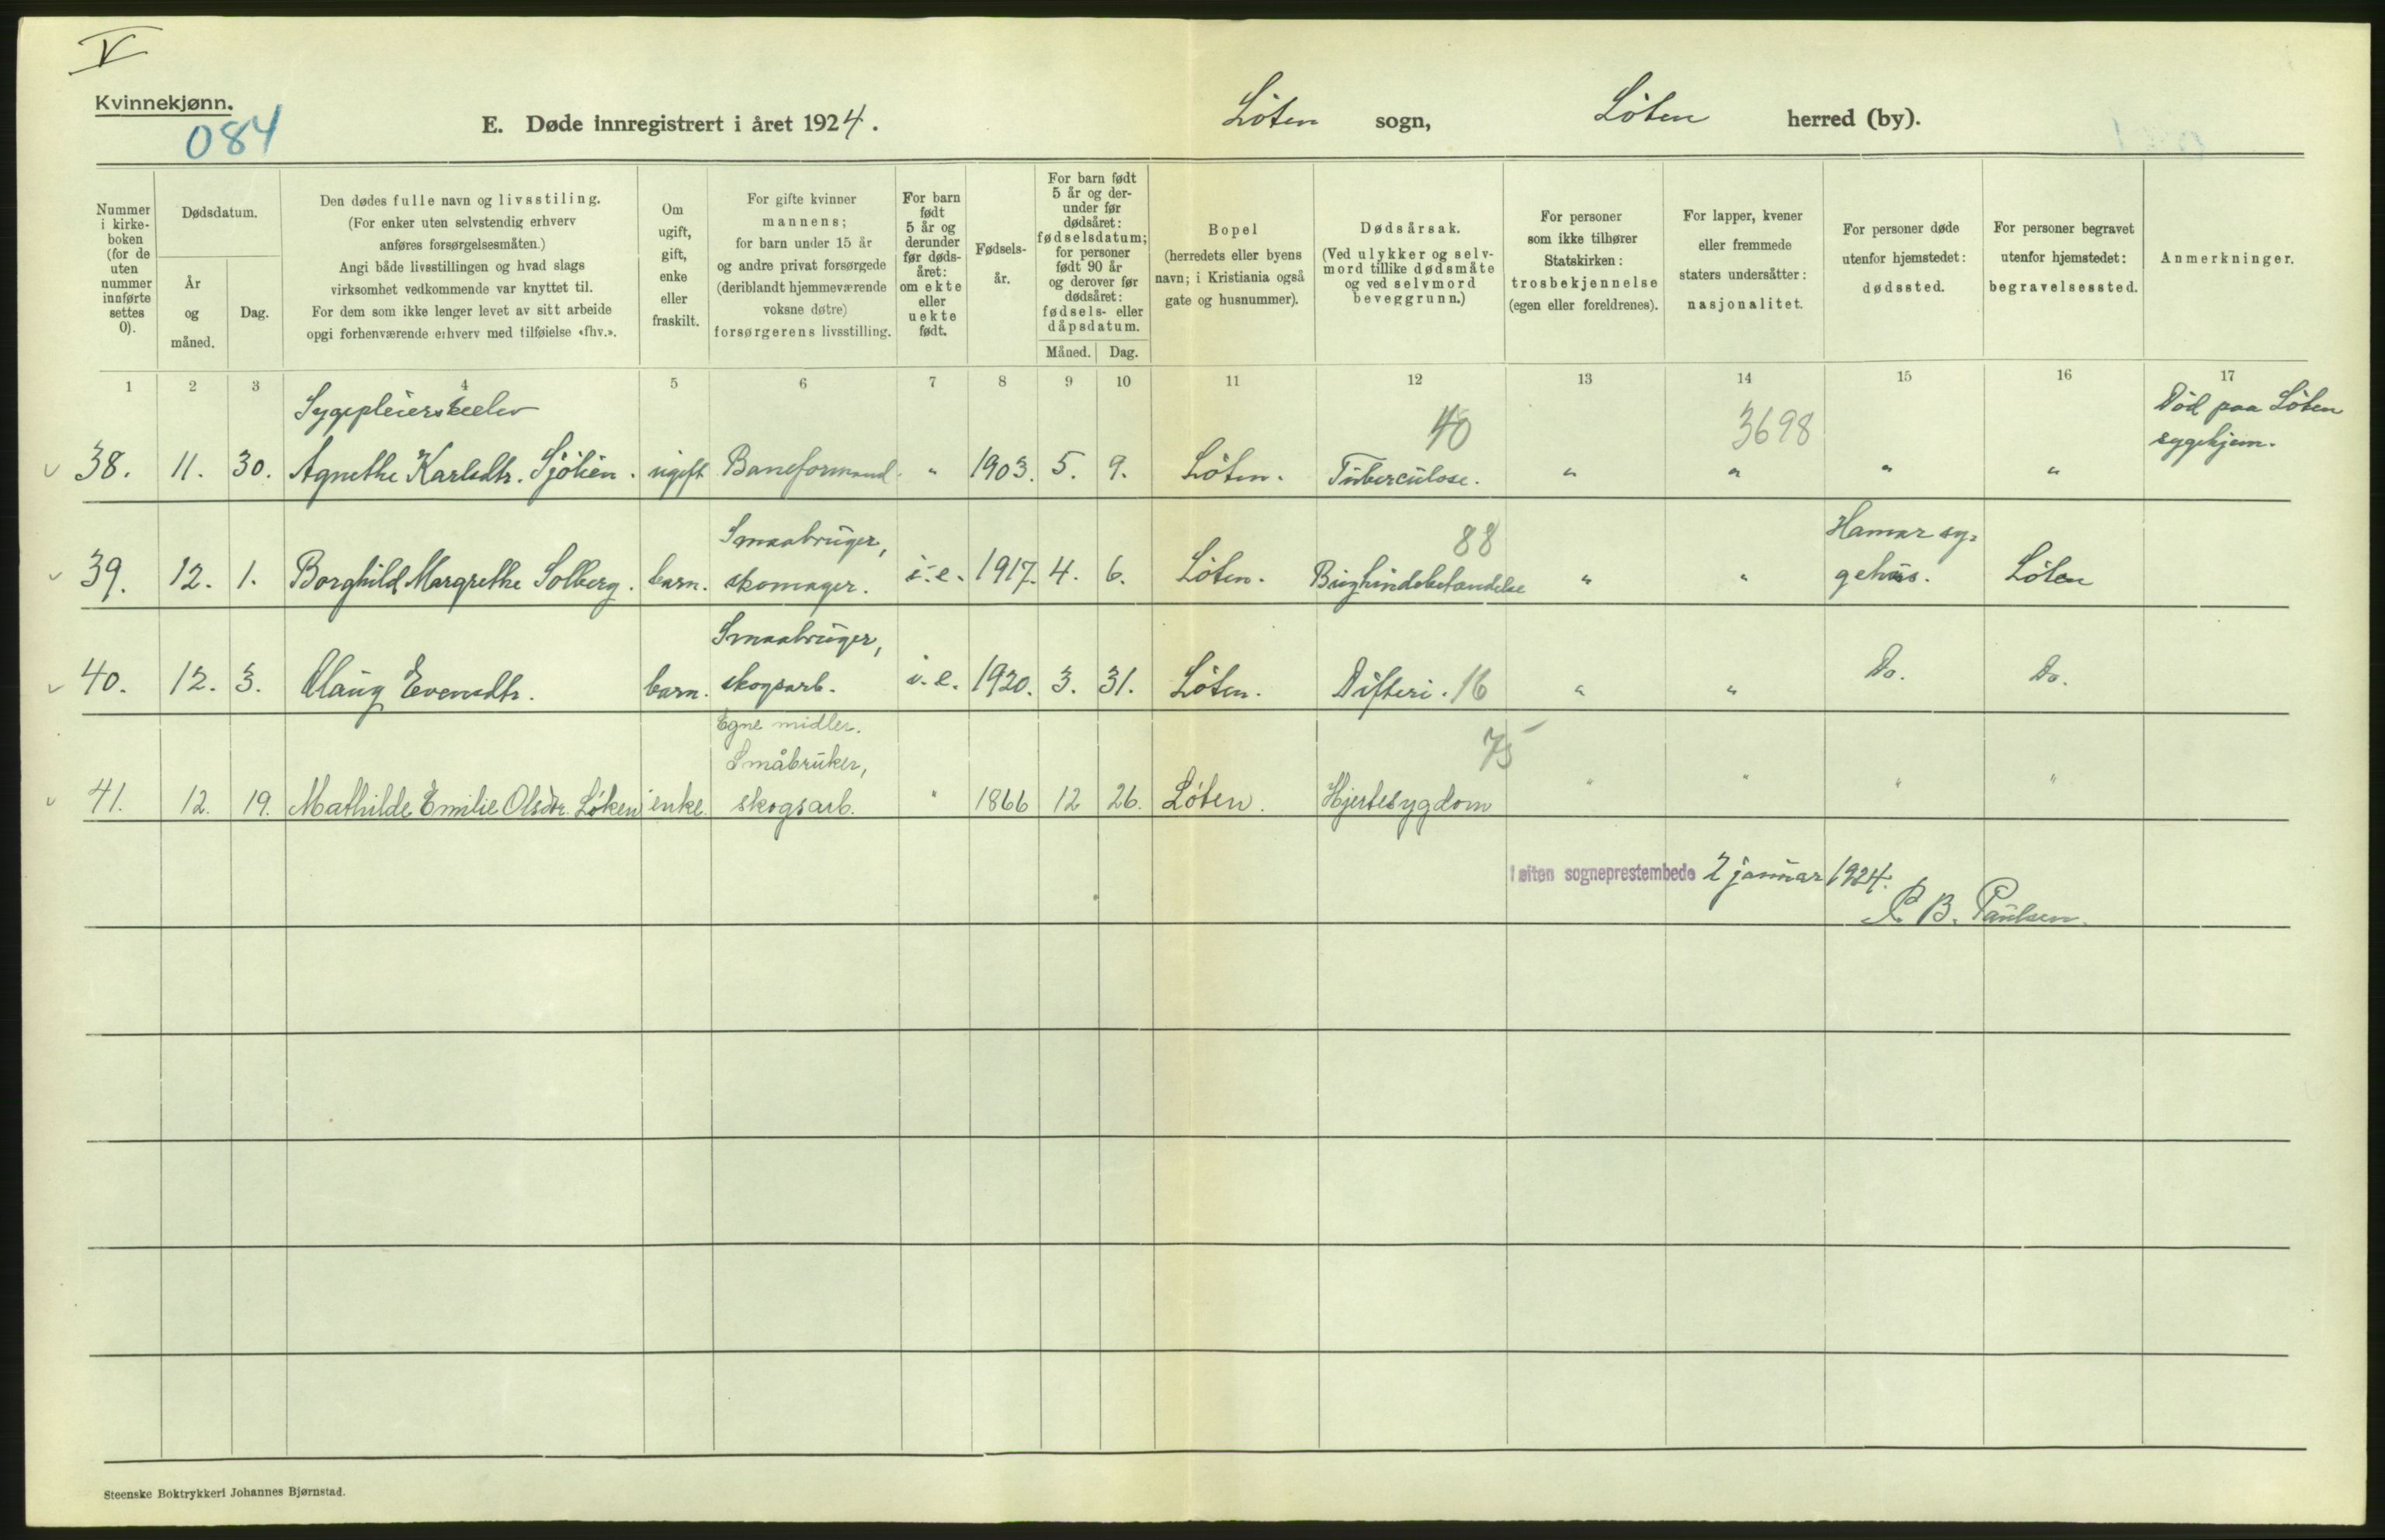 V
Kvinnekjønn.
084
E. Døde innregistrert i året 1924.
Löten sogn, Löten herred (by).
Nummer i kirke- boken (for de uten nummer innførte settes 0).
Dødsdatum.
År og måned.
Dag.
Den dødes fulle navn og livsstiling.
(For enker uten selvstendig erhverv
anføres forsørgelsesmåten.)
Angi både livsstillingen og hvad slags
virksomhet vedkommende var knyttet til.
For dem som ikke lenger levet av sitt arbeide
opgi forhenværende erhverv med tilføielse «fhv.».
Om ugift, gift, enke eller fraskilt.
For gifte kvinner
mannens;
for barn under 15 år
og andre privat forsørgede
(deriblandt hjemmeværende
voksne døtre)
forsørgerens livsstilling.
For barn født 5 år og derunder før døds- året: om ekte eller uekte født.
Fødsels- år.
For barn født 5 år og der- under før dødsåret: fødselsdatum; for personer født 90 år og derover før dødsåret: fødsels- eller dåpsdatum.
Måned. Dag.
Bopel
(herredets eller byens
navn; i Kristiania også
gate og husnummer).
Dødsårsak.
(Ved ulykker og selv-
mord tillike dødsmåte
og ved selvmord
beveggrunn.)
For personer
som ikke tilhører
Statskirken:
trosbekjennelse
(egen eller foreldrenes).
For lapper, kvener
eller fremmede
staters undersåtter:
nasjonalitet.
For personer døde
utenfor hjemstedet:
dødssted.
For personer begravet
utenfor hjemstedet:
begravelsessted.
Anmerkninger.
1 2 3 4 5 6 7 8 9 10 11 12 13 14 15 16 17
Sygepleierskeelev 40 3698 Död paa Löten
sygehjem.
38. 11. 30. Agnethe Karlsdtr. Sjölien. ugift Baneformand. " 1903. 5. 9. Löten. Tuberculose. " " " "
Smaabruger, 88 Hamar sy-
39. 12. 1. Borghild Margrethe Solberg. barn. skomager. i.e. 1917. 4. 6. Löten. Bughindebetændelse " " gehus. Löten
Smaabruger,
40. 12. 3. Olaug Evensdtr. barn. skogsarb. i.e. 1920. 3. 31. Löten. Difteri. 16 " " Do. Do.
Egne midler.
Småbruker, 75
41. 12. 19. Mathilde Emilie Olsdtr. Løken enke. skogsarb. " 1866 12 26. Löten. Hjertesygdom " " " "
Løiten sogneprestembede 2 januar 1924.
P. B. Paulsen.
Steenske Boktrykkeri Johannes Bjørnstad.